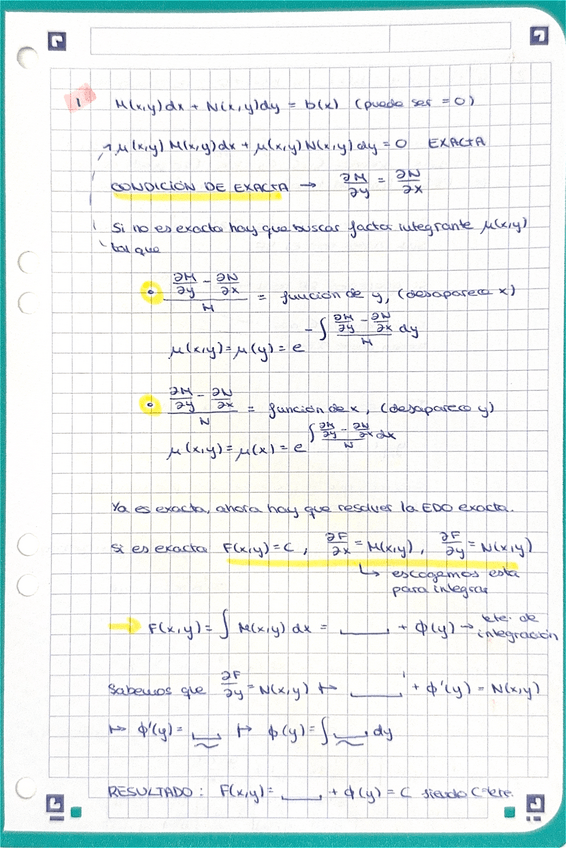 1
M(x,y)dx + N(x,y)dy = b(x) (puede ser = 0)
μ(x,y) M(x,y)dx + μ(x,y) N(x,y) dy = 0 EXACTA
CONDICIÓN DE EXACTA → ∂M/∂y = ∂N/∂x
Si no es exacta hay que buscar factor integrante μ(x,y)
tal que
• (∂M/∂y - ∂N/∂x)/M = función de y, (desaparece x)
μ(x,y) = μ(y) = e^(-∫ (∂M/∂y - ∂N/∂x)/M dy)
• (∂M/∂y - ∂N/∂x)/N = función de x, (desaparece y)
μ(x,y) = μ(x) = e^(∫ (∂M/∂y - ∂N/∂x)/N dx)
Ya es exacta, ahora hay que resolver la EDO exacta.
Si es exacta F(x,y) = C, ∂F/∂x = M(x,y), ∂F/∂y = N(x,y)
↳ escogemos esta
para integrar
→ F(x,y) = ∫ M(x,y) dx = ____ + ϕ(y) → cte. de
integración
Sabemos que ∂F/∂y = N(x,y) ↦ ____' + ϕ'(y) = N(x,y)
↦ ϕ'(y) = ___ ↦ ϕ(y) = ∫ ___ dy
RESULTADO: F(x,y) = ____ + ϕ(y) = C siendo C cte.